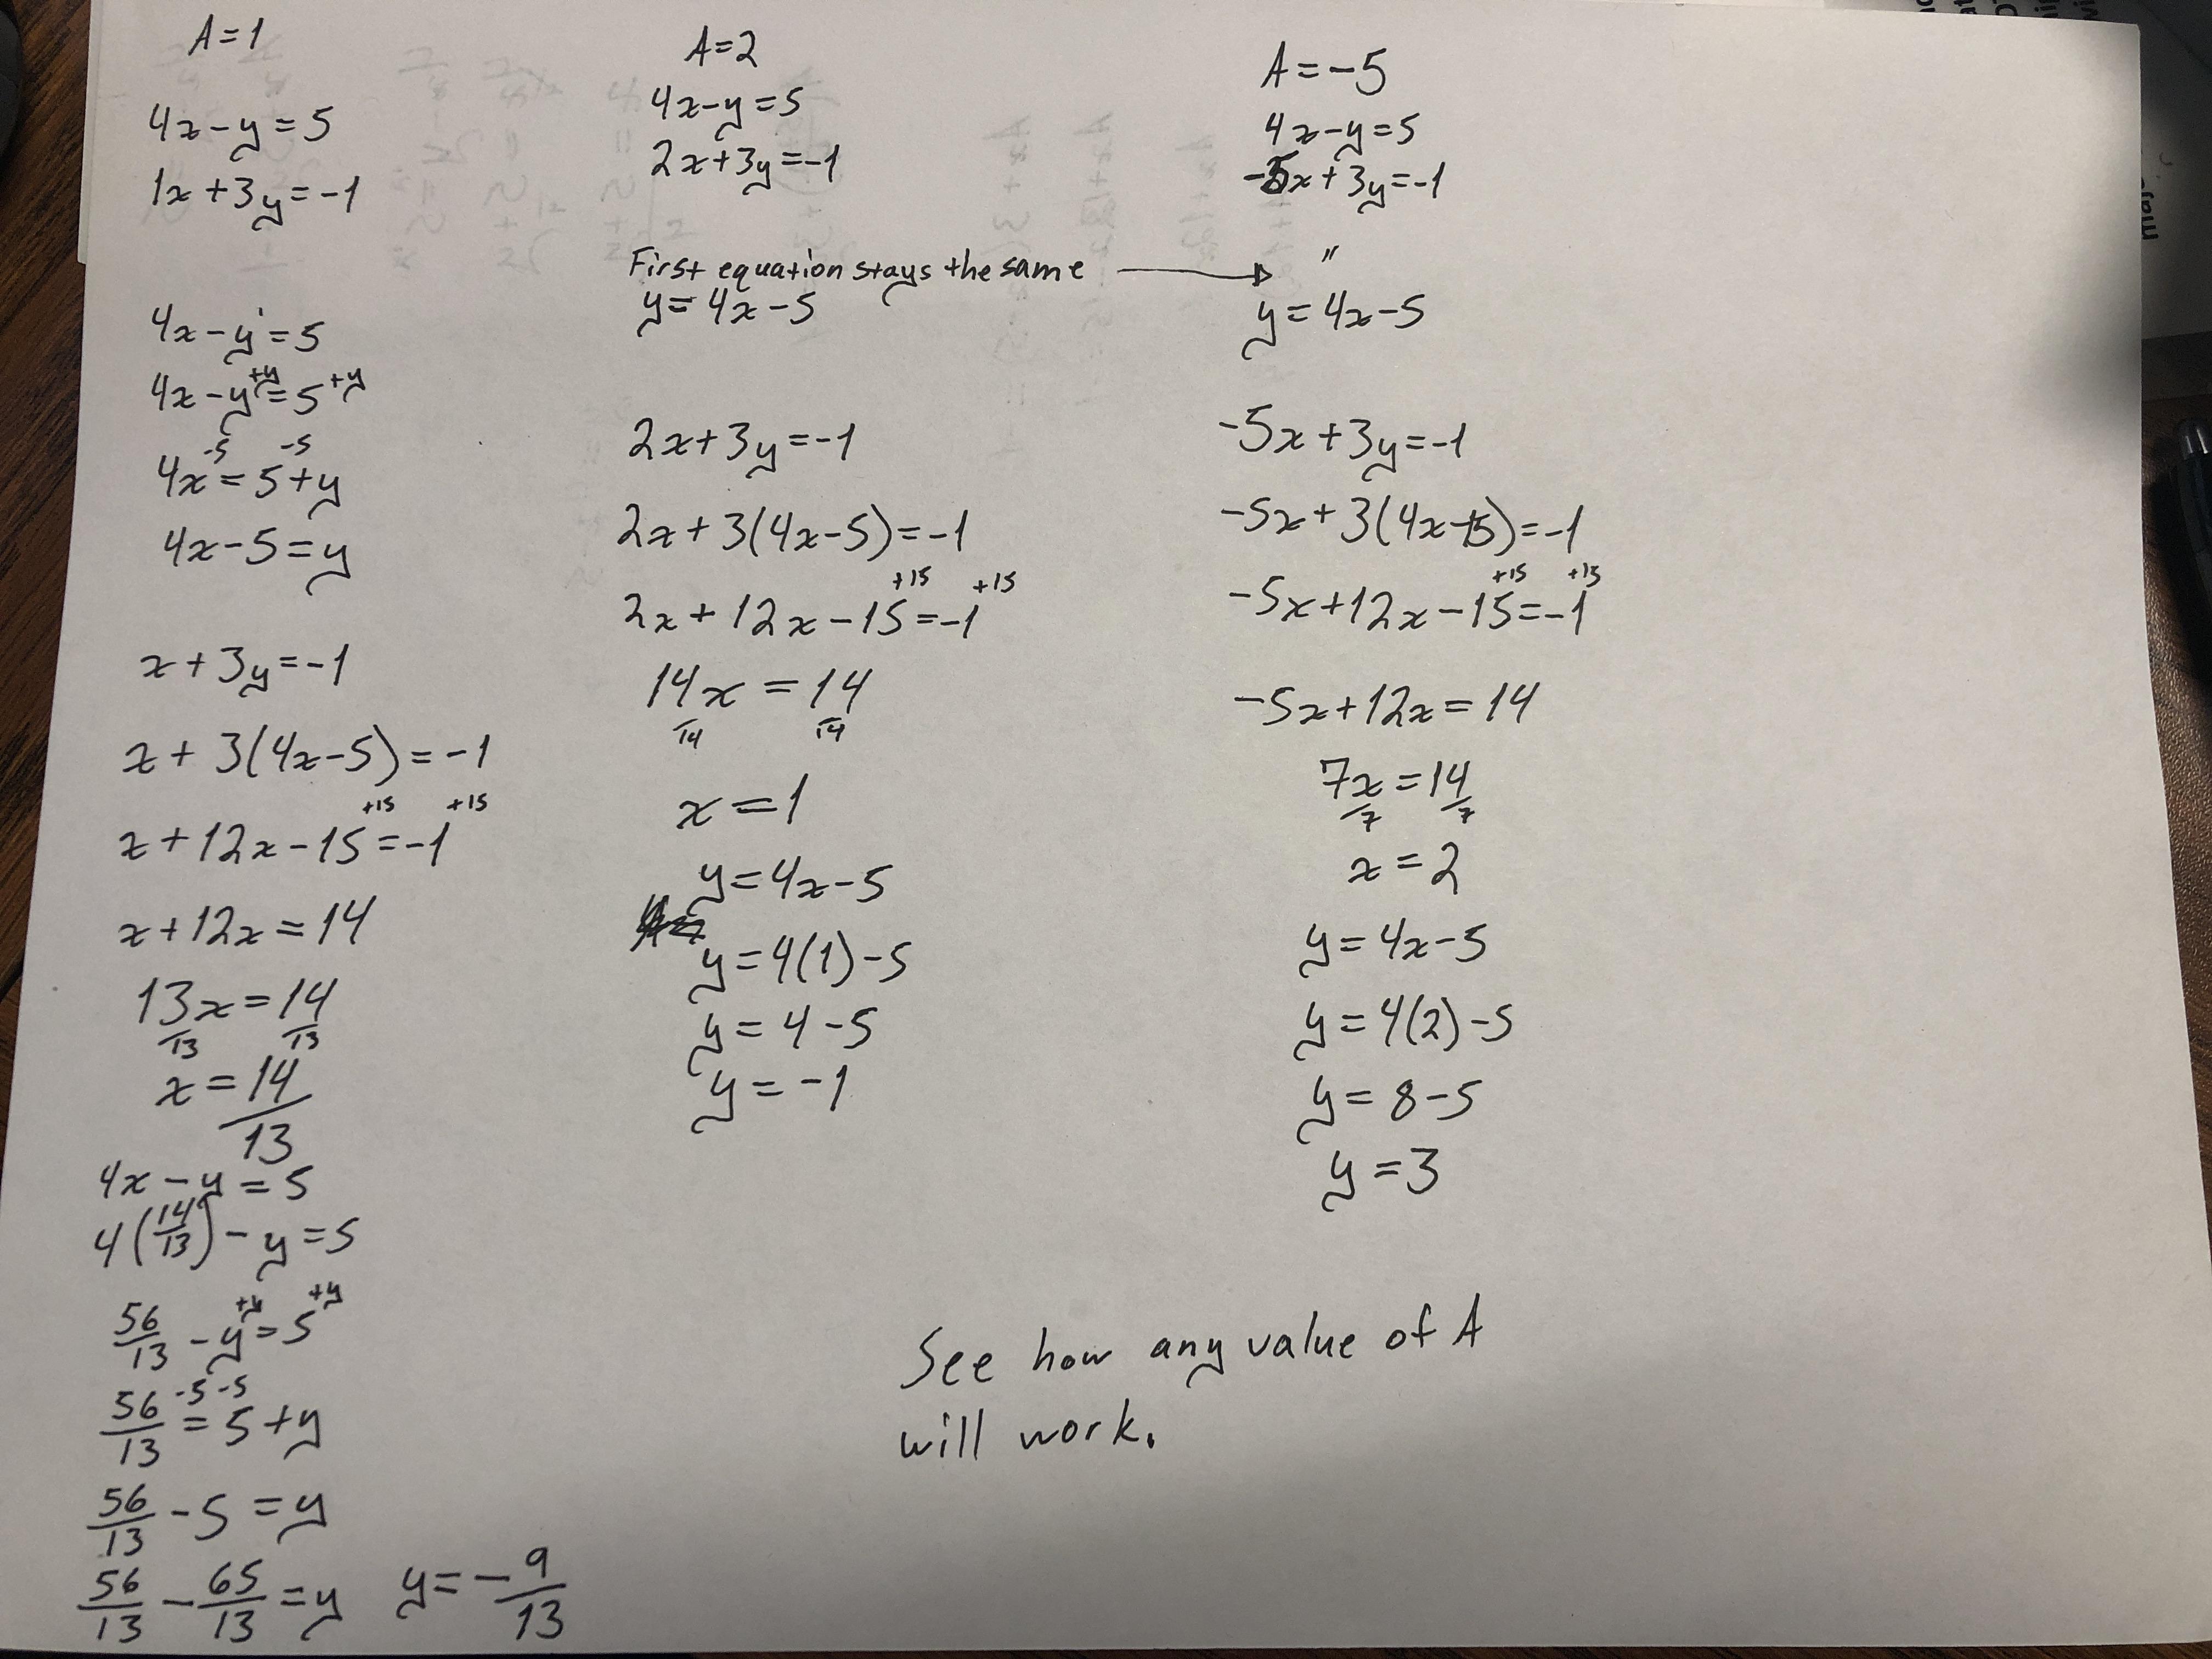 A=1
4x-y=5
1x+3y=-1
4x-y=5
4x-y+y=5+y
-5 -5
4x=5+y
4x-5=y
x+3y=-1
x+3(4x-5)=-1
+15 +15
x+12x-15=-1
x+12x=14
13x=14
/13 /13
x=14/13
4x-y=5
4(14/13)-y=5
+y +y
56/13-y=5
-5 -5
56/13=5+y
56/13-5=y
56/13-65/13=y y=-9/13
A=2
4x-y=5
2x+3y=-1
First equation stays the same →
y=4x-5
2x+3y=-1
2x+3(4x-5)=-1
+15 +15
2x+12x-15=-1
14x=14
/14 /14
x=1
y=4x-5
y=4(1)-5
y=4-5
y=-1
A=-5
4x-y=5
-5x+3y=-1
"
y=4x-5
-5x+3y=-1
-5x+3(4x-5)=-1
+15 +15
-5x+12x-15=-1
-5x+12x=14
7x=14
/7 /7
x=2
y=4x-5
y=4(2)-5
y=8-5
y=3
See how any value of A
will work.